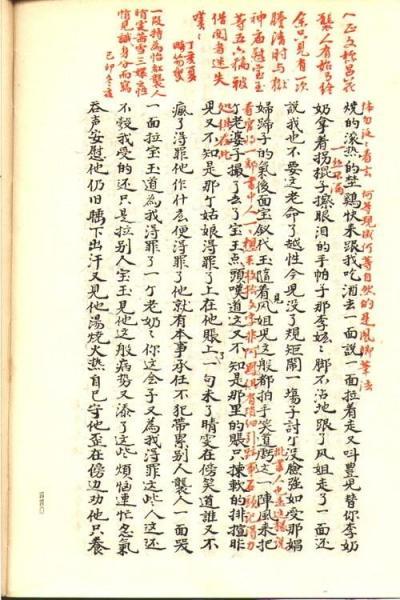 正文標昌花
襲人有始有終
余只見有一次
謄清時與獄
神廟慰寶玉
等五六稿被
借閱者迷失
嘆嘆
丁亥夏
畸笏叟
一段特為怡紅襲人
晴雯茜雪三環之
性情見識身分而寫
己卯冬夜
何等現成何等自然的是鳳卿筆法
燒的滾熱的野鷄快來跟我吃酒去一面說一面拉着走又叫豊兒替你李奶
奶拿着拐棍子擦眼淚的手帕子那李嬷嬷脚不沾地跟了鳳姐走了一面還
說我也不要這老命了越性今兒沒了規矩鬧一塲子討个沒臉強如受那娼
婦蹄子的氣後面寶釵代玉隨着鳳姐兒見這般都拍手笑道虧這一陣風來把
个老婆子撮了去了寶玉點頭嘆道這又不知是那里的賬只揀軟的排揎昨
兒又不知是那个姑娘得罪了上在他賬上一句未了晴雯在傍笑道誰又不
瘋了得罪他作什么便得罪了他就有本事承任不犯帶累別人襲人一面哭
一面拉寶玉道為我得罪了一个老奶奶你這會子又為我得罪這些人這還
不彀我受的還只是拉別人寶玉見他這般病勢又添了這些煩惱連忙忍氣
吞聲安慰他仍舊睡下出汗又見他湯燒火熱自己守他歪在傍邊勸他只養